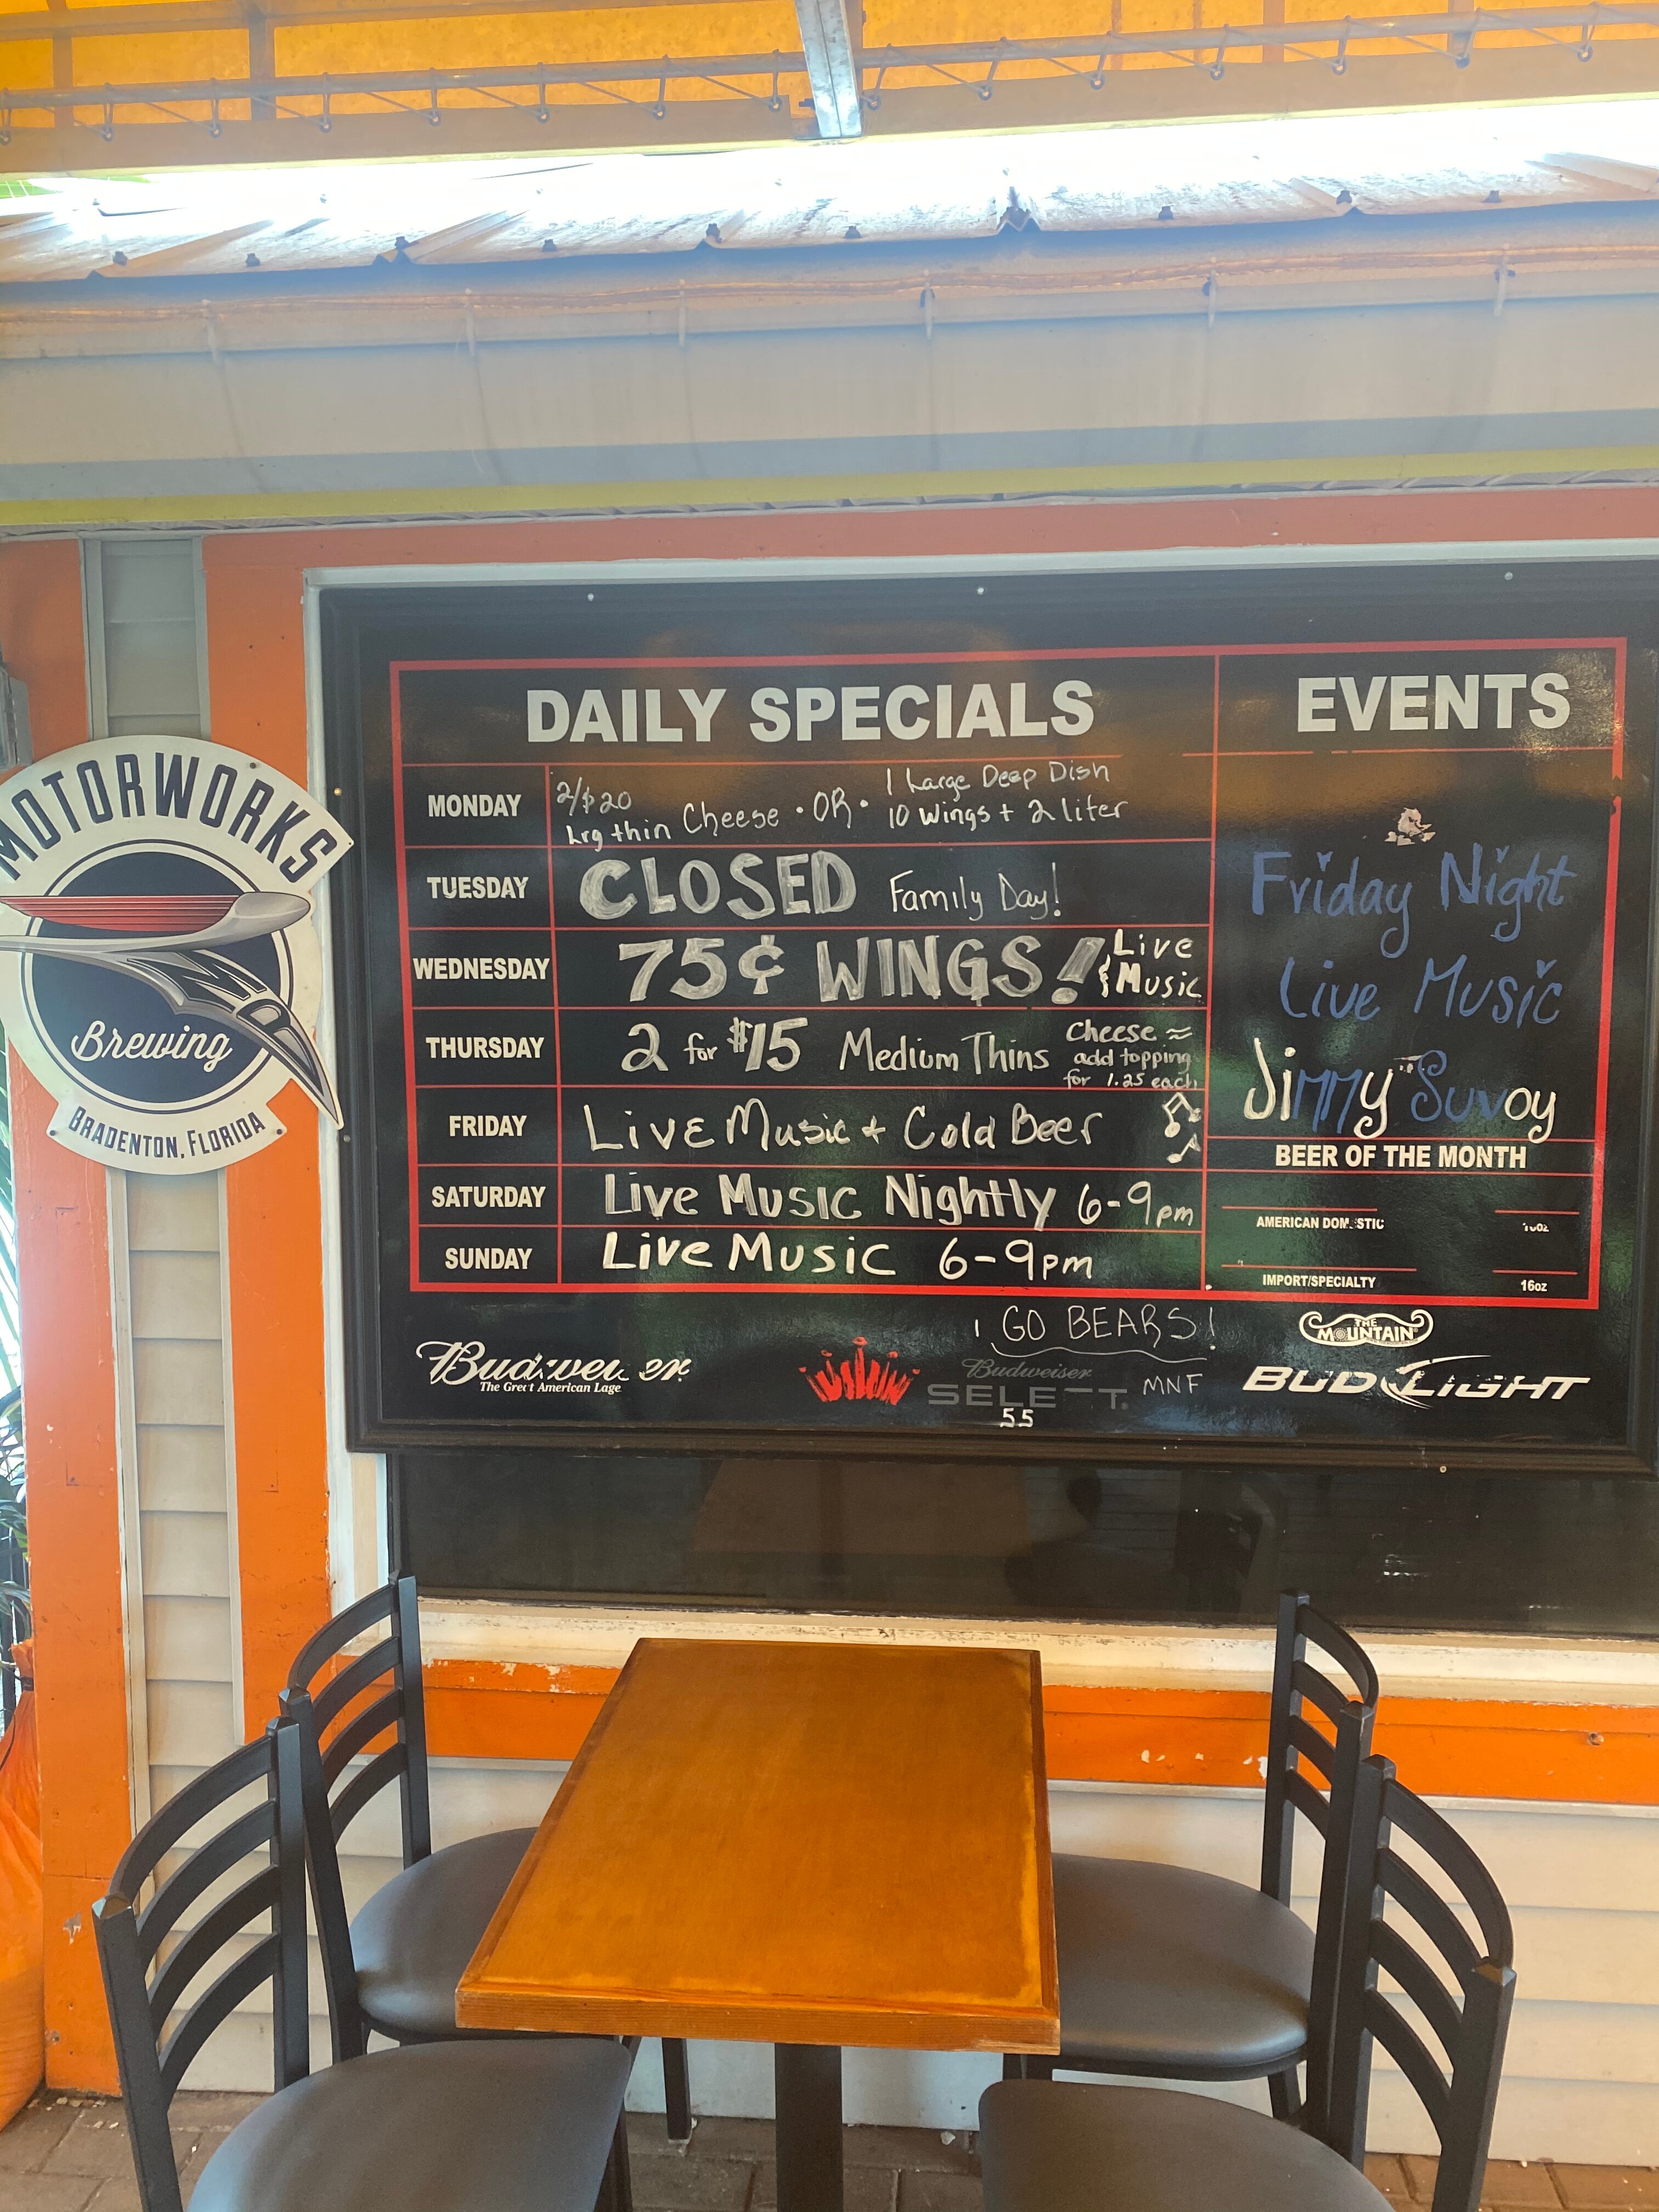 MOTORWORKS
Brewing
BRADENTON, FLORIDA
DAILY SPECIALS
MONDAY
2/$20
Lrg thin Cheese • OR •
1 Large Deep Dish
10 Wings + 2 liter
TUESDAY
CLOSED Family Day!
WEDNESDAY
75¢ WINGS! & Live
Music
THURSDAY
2 for $15 Medium Thins
Cheese ≈
add topping
for 1.25 each
FRIDAY
Live Music + Cold Beer
SATURDAY
Live Music Nightly 6-9pm
SUNDAY
Live Music 6-9pm
EVENTS
Friday Night
Live Music
Jimmy Suvoy
BEER OF THE MONTH
AMERICAN DOM STIC
IMPORT/SPECIALTY 16oz
GO BEARS!
MNF
Budwe er
The Gre t American Lage
Budweiser
SELE T.
55
THE
MOUNTAIN
BUD LIGHT